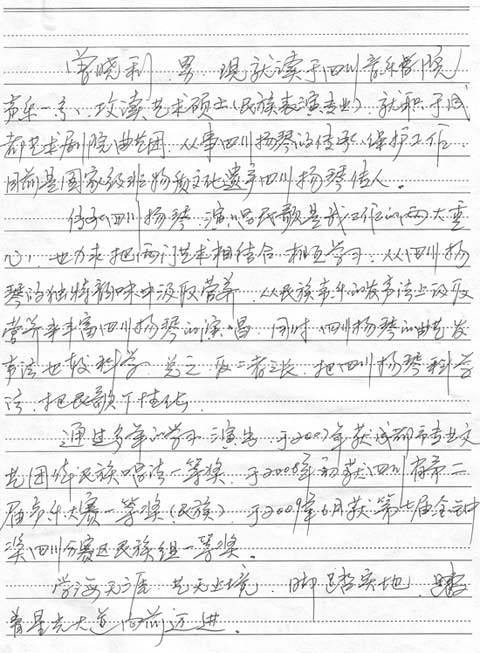 曾晓利，男，现就读于四川音乐学院
声乐一系、攻读艺术硕士(民族表演专业)，就职于成
都艺术剧院曲艺团，从事四川扬琴的传承、保护工作，
目前是国家级非物质文化遗产四川扬琴传人。
传承四川扬琴，演唱民歌是我工作的两大重
心，也力求把两门艺术相结合，相互学习，从四川扬
琴的独特韵味中汲取营养，从民族声乐的发声法上汲取
营养来丰富四川扬琴的演唱，同时四川扬琴的曲艺发
声法也较科学，总之取二者之长，把四川扬琴科学
法，把民歌个性化。
通过多年的学习演出，于2007年获成都市专业文
艺团体民族唱法一等奖，于2008年初获四川省第二
届声乐大赛一等奖(民族)，于2009年6月获第七届金钟
奖四川分赛区民族组一等奖。
学海无涯，艺无止境，脚踏实地，
着星光大道向前迈进。